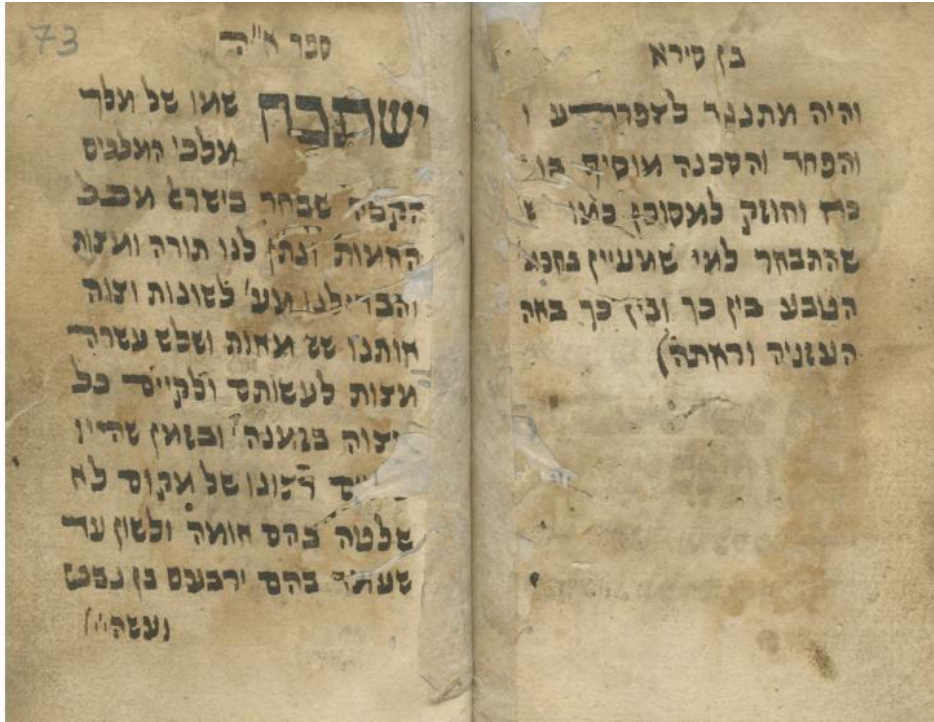 בן סירא
והיה מתנגד ו
והפחד והסכנה מוסיף בו
כח וחוזק למסוכן כמו
למי שמעיין
הטבע בין כך ובין כך
העזניה
73
ספר
ישתבח שמו של מלך
מלכי המלכים
שבחר מכל
האומות ונתן לנו תורה ומצות
והבדילנו מע' לשונות וצוה
אותנו שש מאות ושלש עשרה
מצות לעשותם ולקיים כל
בזמנה ובזמן שהיו
רצונו של מקום לא
שלטה בהם אומה ולשון עד
שעמד בהם ירבעם בן נבט